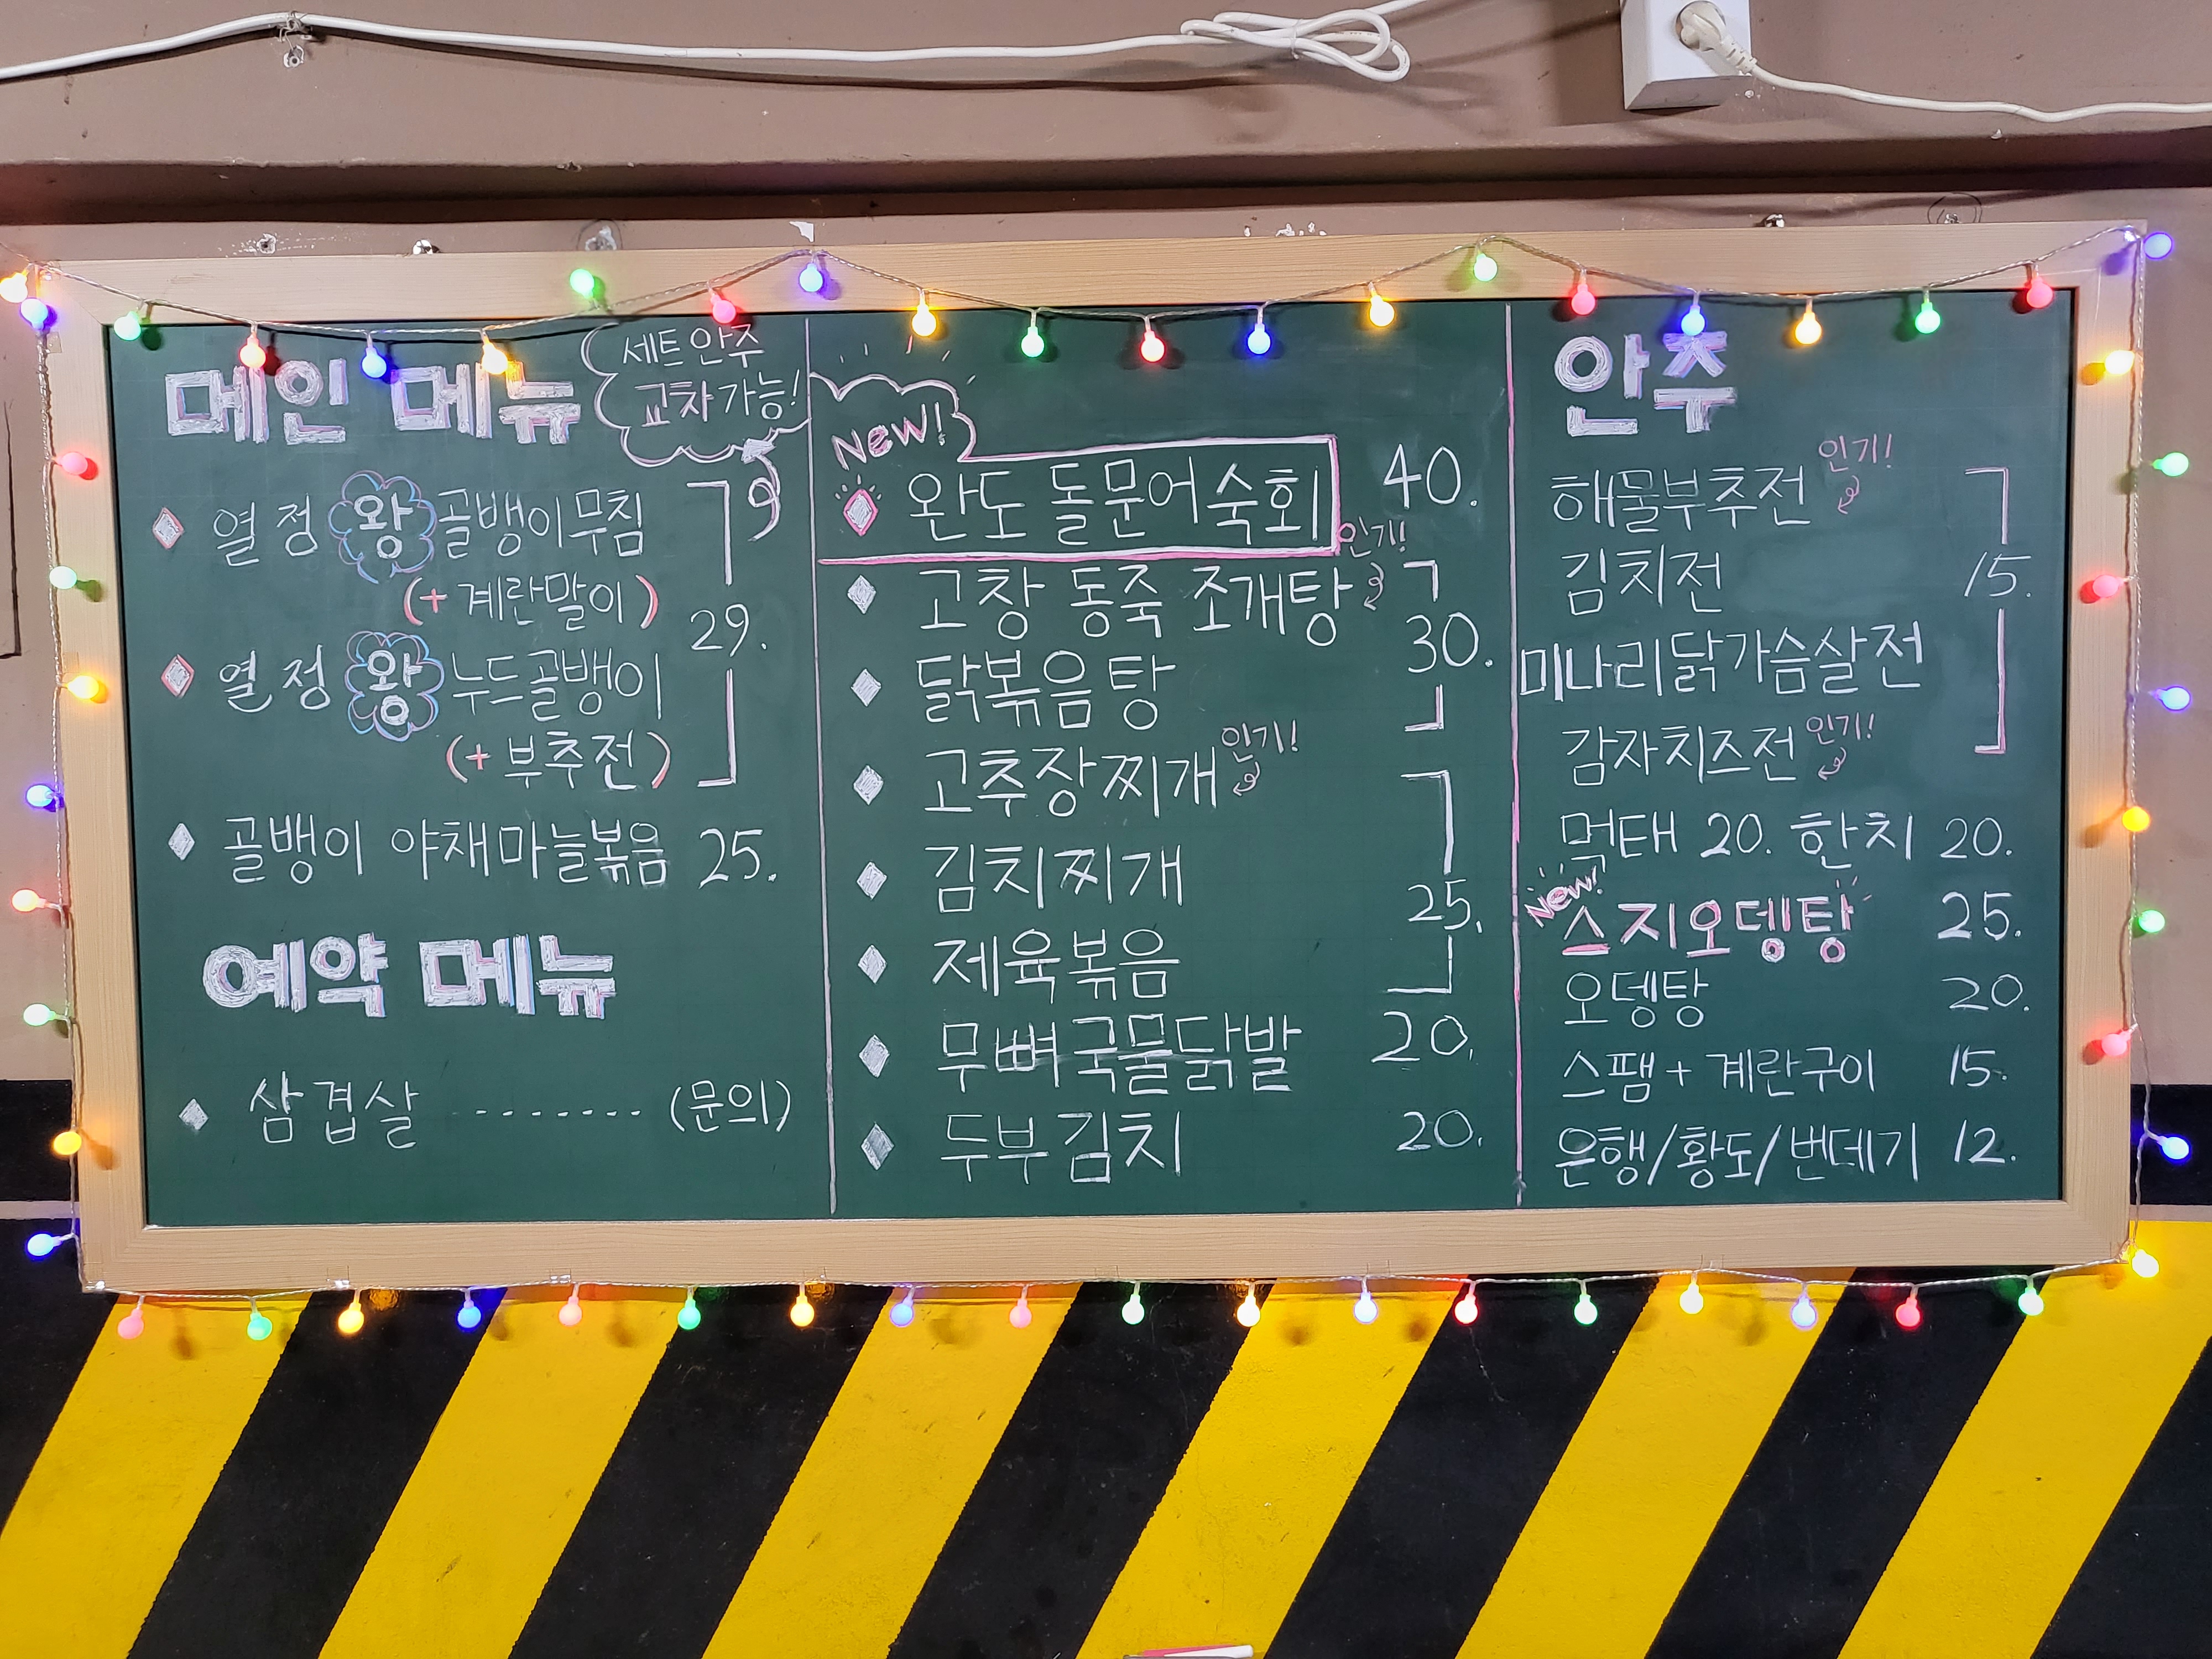 메인 메뉴
세트 안주
교차가능!
열정 왕 골뱅이무침
(+ 계란말이)
29.
열정 왕 누드골뱅이
(+ 부추전)
골뱅이 야채마늘볶음 25.
예약 메뉴
삼겹살 -------- (문의)
New!
완도 돌문어숙회 40.
인기!
고창 동죽 조개탕
30.
닭볶음탕
고추장찌개 인기!
김치찌개
25.
제육볶음
무뼈국물닭발 20.
두부김치 20.
안주
인기!
해물부추전
김치전 15.
미나리닭가슴살전
감자치즈전 인기!
먹태 20. 한치 20.
New!
스지오뎅탕 25.
오뎅탕 20.
스팸 + 계란구이 15.
은행/황도/번데기 12.